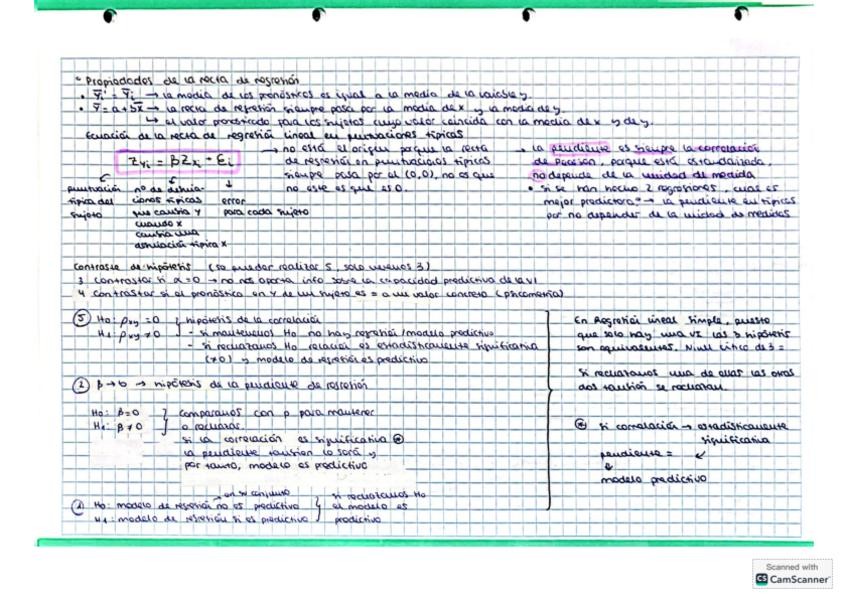 " Propiedades de la recta de regresión
• Ȳi' = Ȳi → la media de los pronósticos es igual a la media de la variable y.
• Ȳ = a + bx̄ → la recta de regresión siempre pasa por la media de x y la media de y.
↳ el valor pronosticado para los sujetos cuyo valor coincida con la media de x y de y.
Ecuación de la recta de regresión lineal en puntuaciones típicas
Zyi = βZxi + Ei
puntuación típica del sujeto
nº de desviaciones típicas que cambia y cuando x cambia una desviación típica x
error para cada sujeto
→ no está el origen porque la recta
de regresión en puntuaciones típicas
siempre pasa por el (0,0), no es que
no esté es que es 0.
→ la pendiente es siempre la correlación
de Pearson, porque está estandarizada,
no depende de la unidad de medida
• si se han hecho 2 regresiones, cual es
mejor predictora? → la pendiente en típicas
por no depender de la unidad de medidas
Contraste de hipótesis (se pueden realizar 5, solo veremos 3)
3 contrastar si α=0 → no nos aporta info sobre la capacidad predictiva de la VI
4 contrastar si el pronóstico en Y de un sujeto es = a un valor concreto (psicometría)
⑤ H0: ρxy = 0 } hipótesis de la correlación
H1: ρxy ≠ 0 - si mantenemos H0 no hay regresión/modelo predictivo
- si rechazamos H0 relación es estadísticamente significativa
(≠0) y modelo de regresión es predictivo
② β → b → hipótesis de la pendiente de regresión
H0: β = 0 } comparamos con p para mantener
H1: β ≠ 0 o rechazar.
si la correlación es significativa ⊛
la pendiente también lo será y
por tanto, modelo es predictivo
→ en su conjunto
① H0: modelo de regresión no es predictivo } si rechazamos H0
H1: modelo de regresión si es predictivo el modelo es
predictivo
En Regresión lineal simple, puesto
que solo hay una VI las 3 hipótesis
son equivalentes. Nivel crítico de 3 =
Si rechazamos una de ellas las otras
dos también se rechazan.
⊛ si correlación → estadísticamente
significativa
pendiente = ↙
↓
modelo predictivo
Scanned with
CS CamScanner